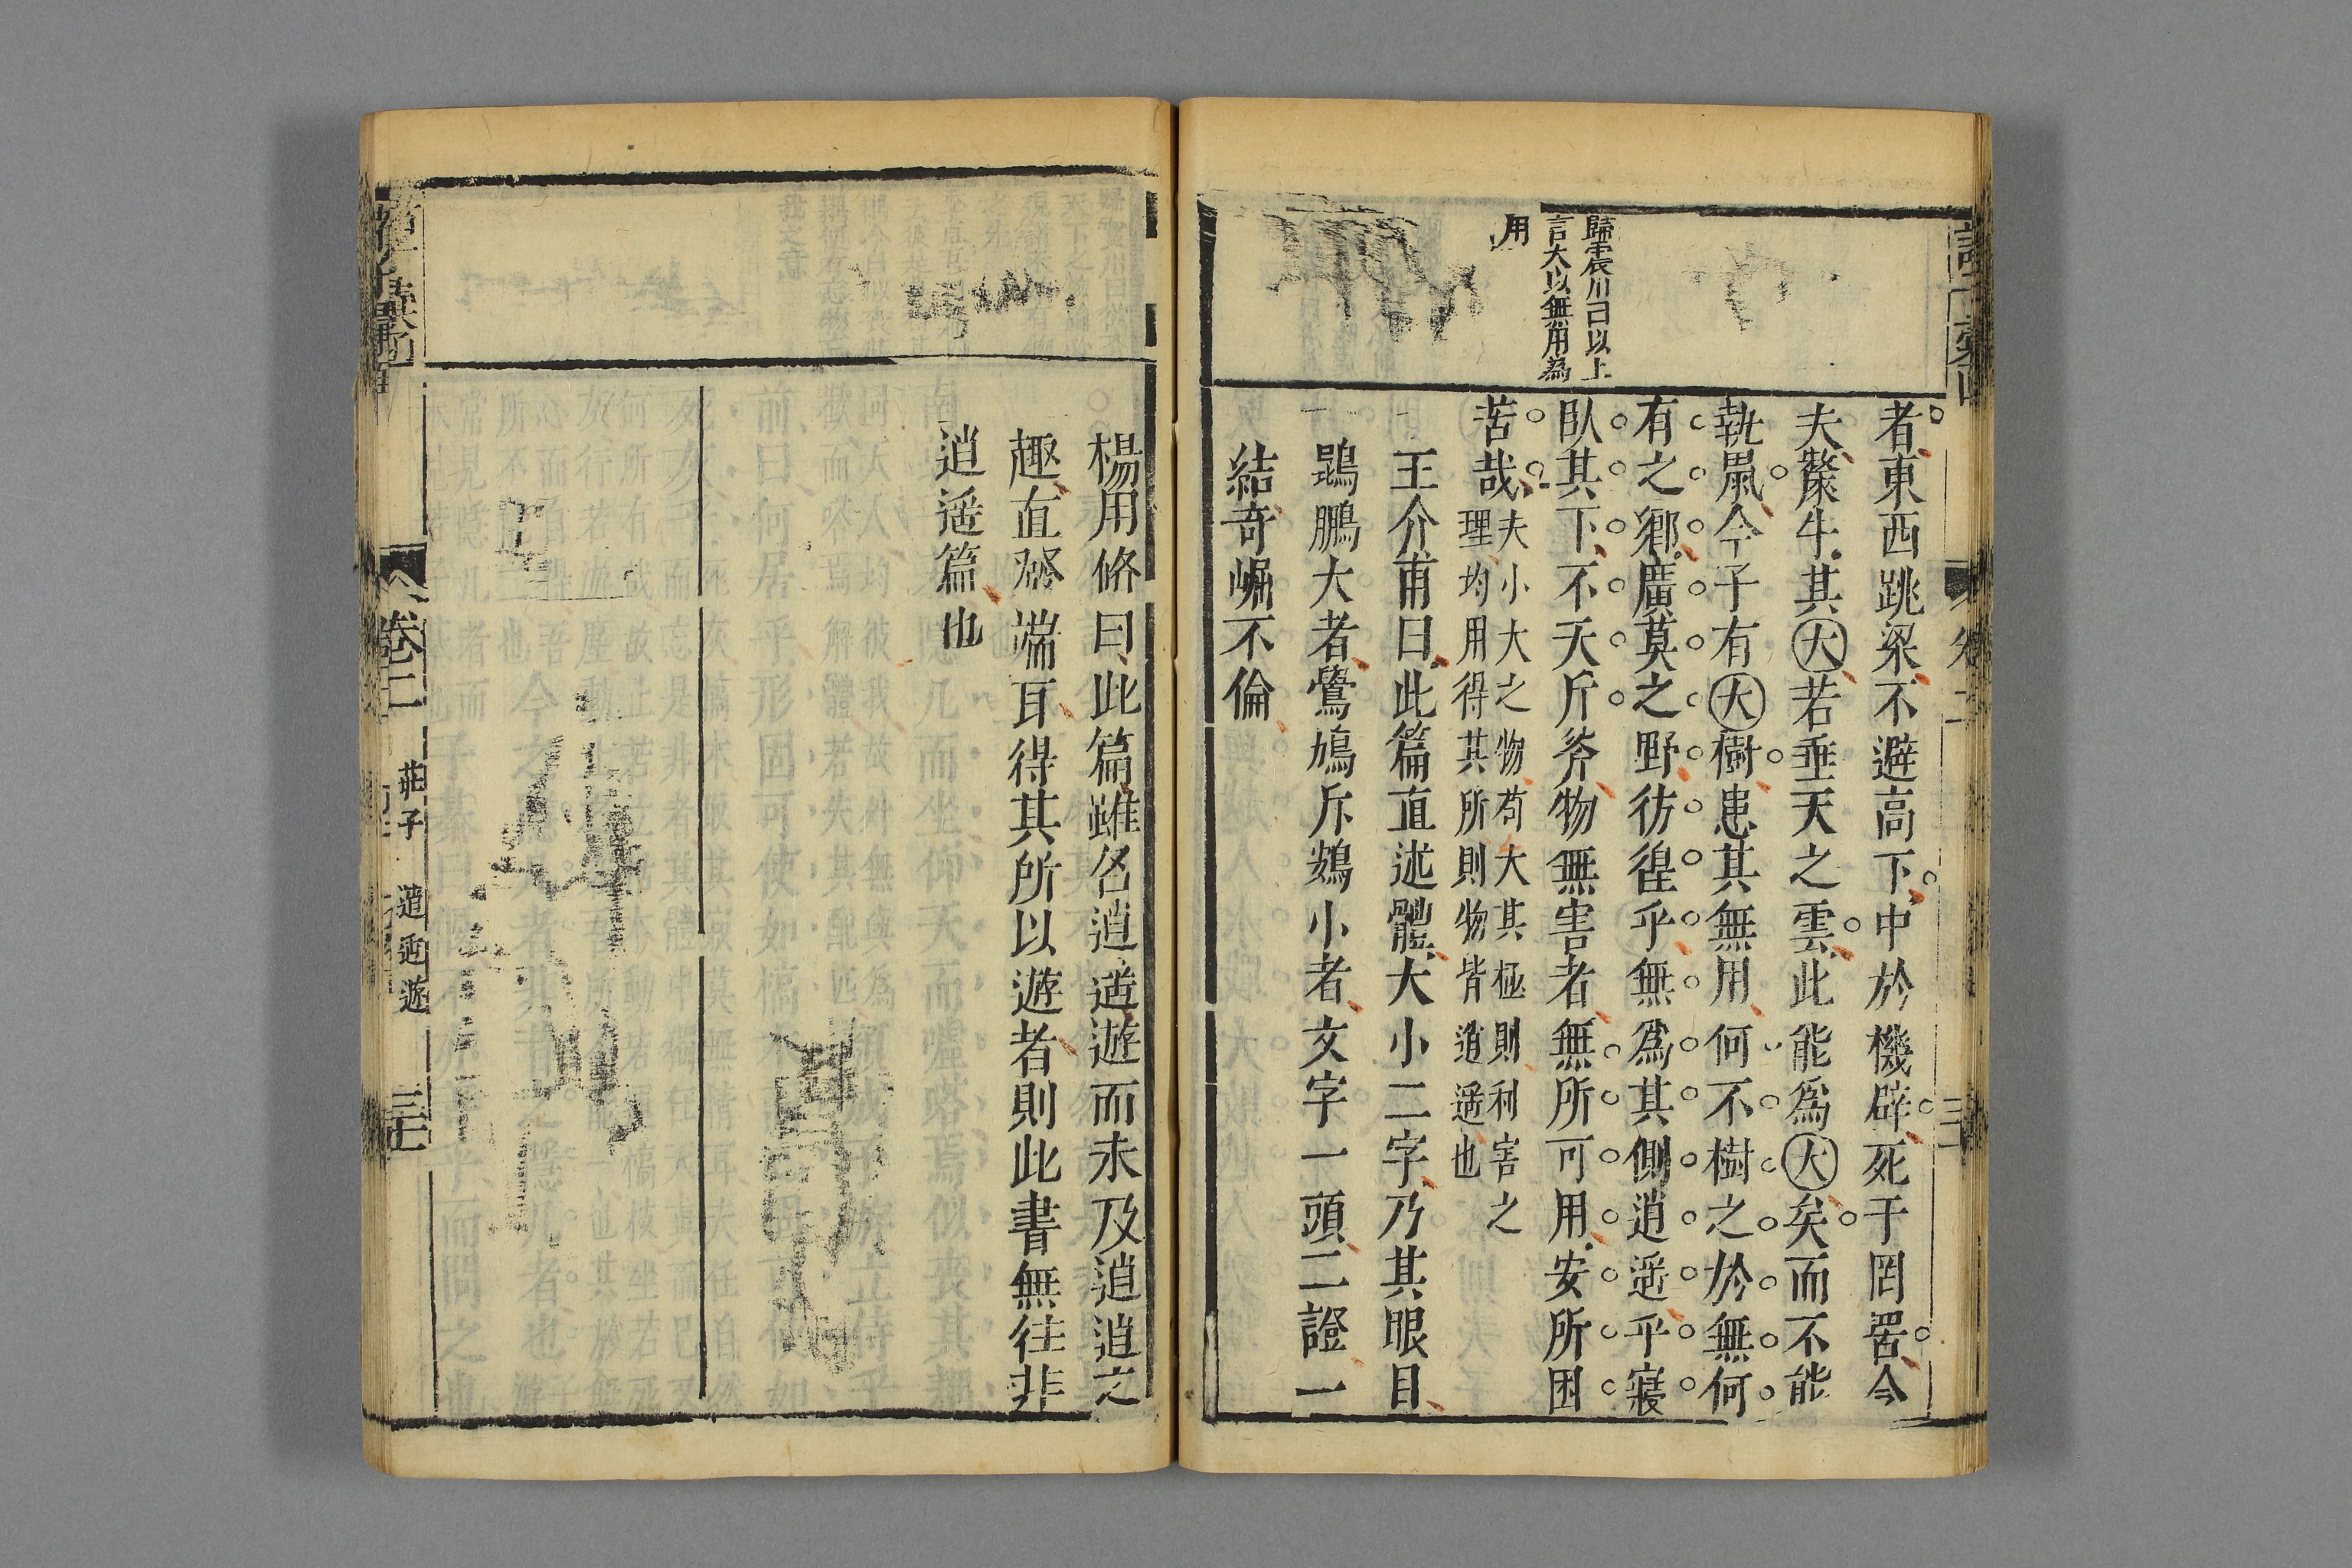 歸震川曰以上
言大以無用為
用
者東西跳梁不避高下中於機辟死于罔罟今
夫斄牛其大若垂天之雲此能爲大矣而不能
執鼠今子有大樹患其無用何不樹之於無何
有之鄉廣莫之野彷徨乎無爲其側逍遥乎寢
臥其下不夭斤斧物無害者無所可用安所困
苦哉
夫小大之物苟大其極則利害之
理均用得其所則物皆逍遥也
王介甫曰此篇直述體大小二字乃其眼目
鵾鵬大者鷽鳩斥鷃小者文字一頭二證一
結奇崛不倫
楊用脩曰此篇雖名逍遥遊而未及逍逍之
趣直發端耳得其所以遊者則此書無往非
逍遥篇也
卷二
莊子
逍遥遊